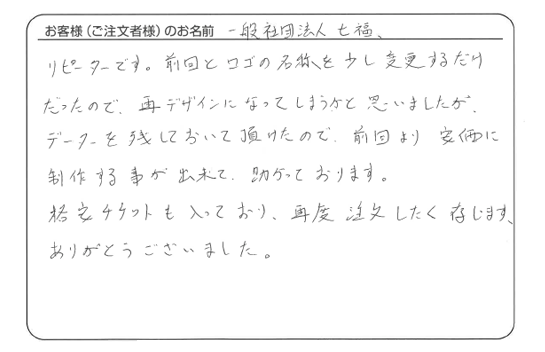 お客様（ご注文者様）のお名前 一般社団法人 七福、
リピーターです。前回とロゴの名称を少し変更するだけ
だったので、再デザインになってしまうかと思いましたが、
データーを残しておいて頂けたので、前回より安価に
制作する事が出来て、助かっております。
格安チケットも入っており、再度注文したく存じます、
ありがとうございました。